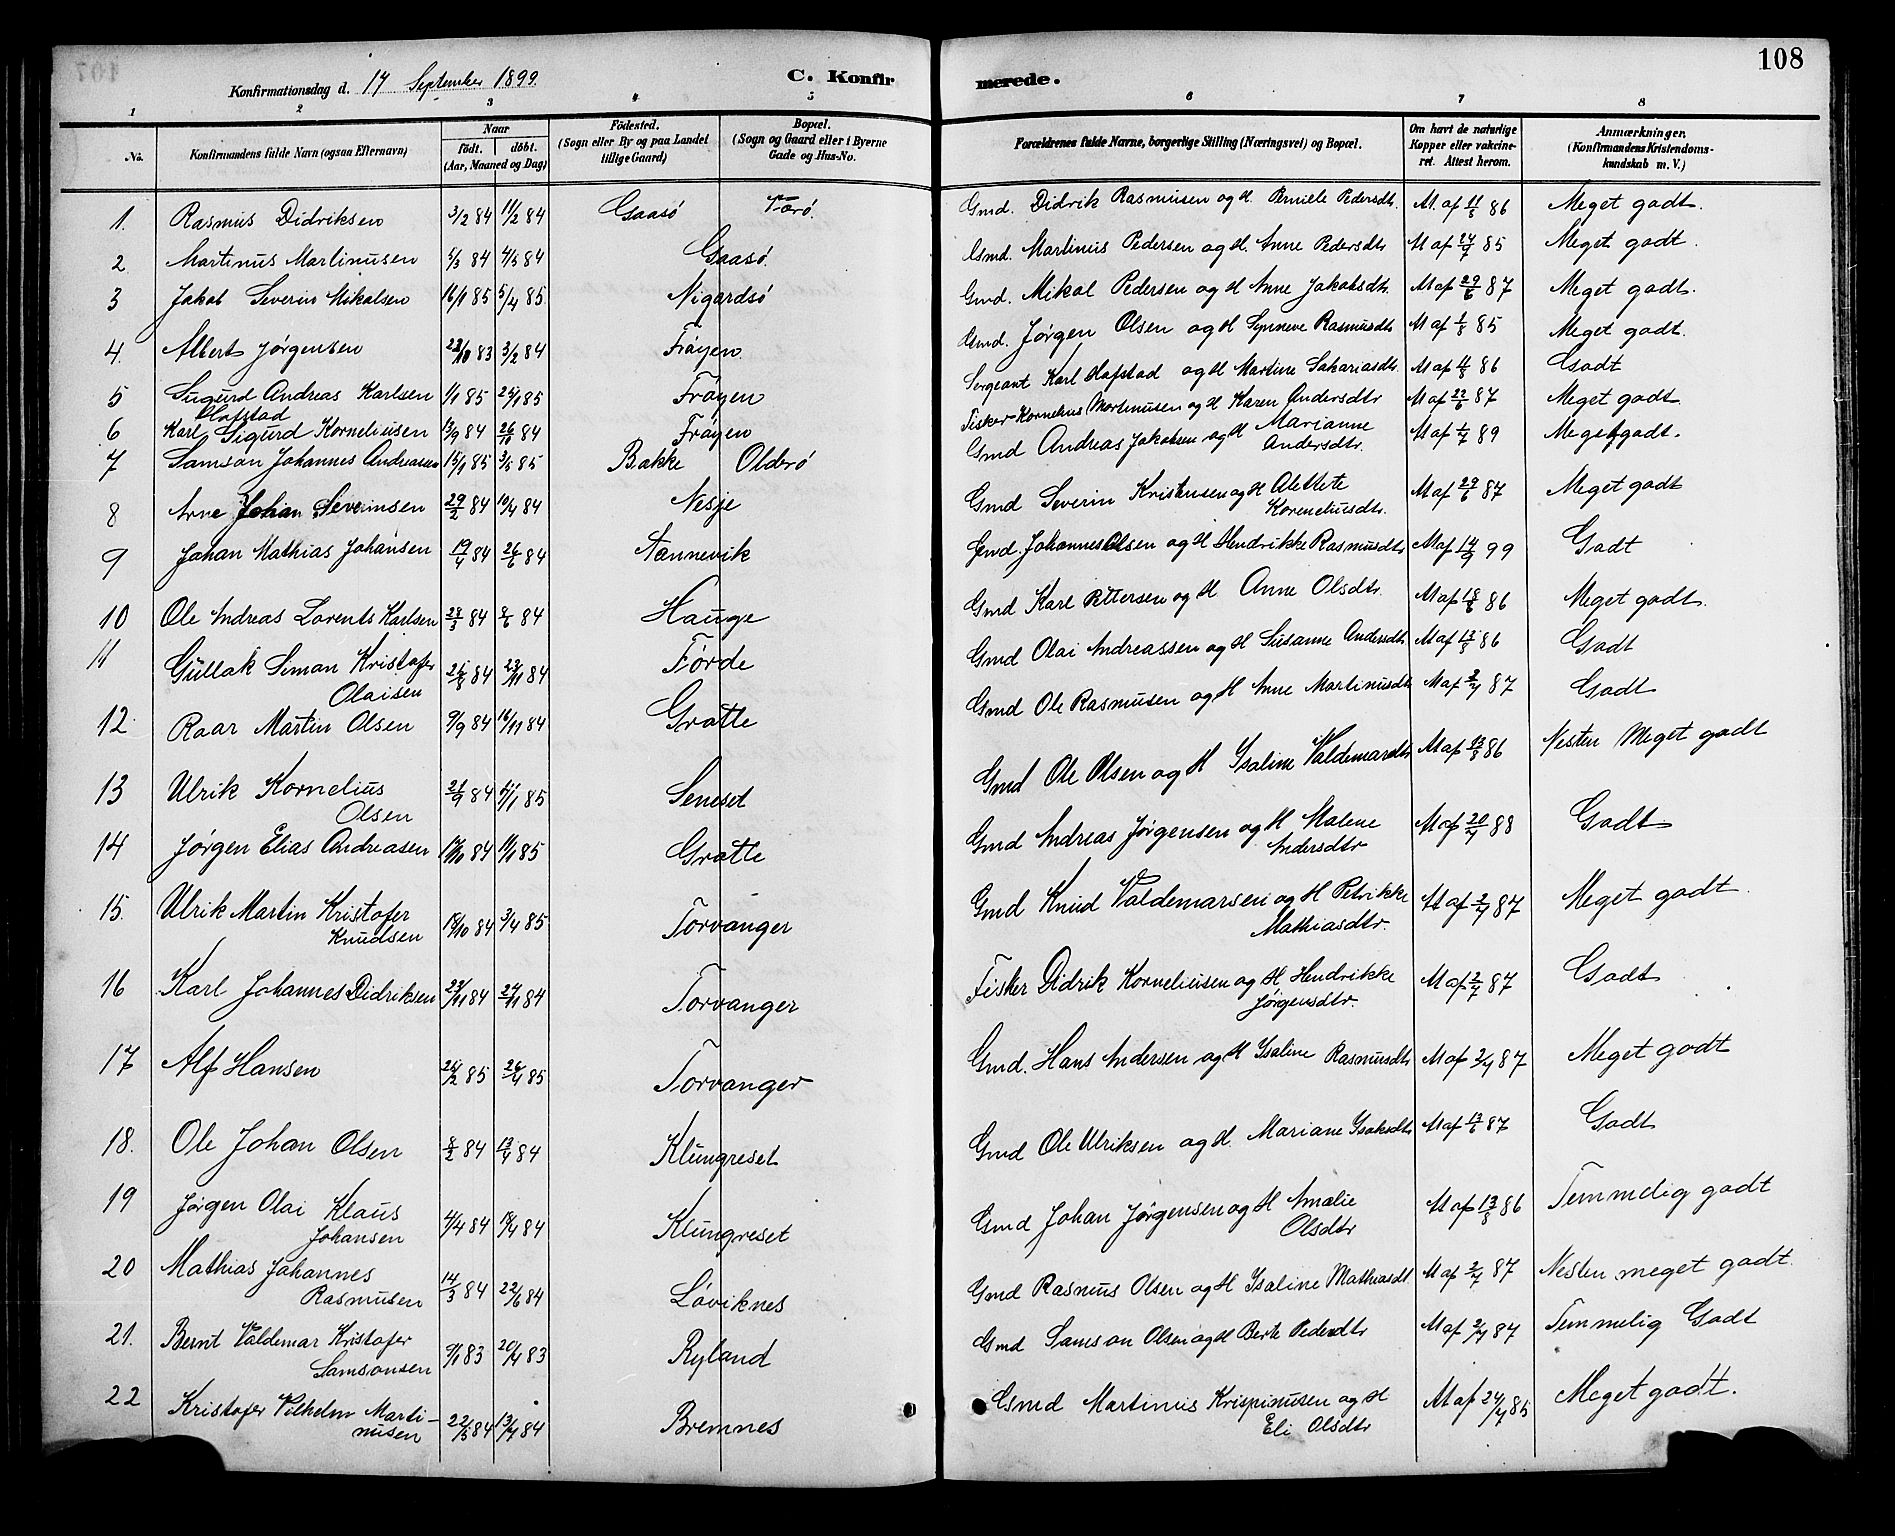 108
Konfirmationsdag d. 17 September 1899
C. Konfirmerede.
1 2 3 4 5 6 7 8
No. Konfirmandens fulde Navn (ogsaa Efternavn) Naar født. døbt. (Aar, Maaned og Dag) Födested. (Sogn eller By og paa Landet tillige Gaard) Bopæl. (Sogn og Gaard eller i Byerne Gade og Hus-No. Forældrenes fulde Navne, borgerlige Stilling (Næringsvei) og Bopæl. Om havt de naturlige Kopper eller vaccineret. Attest herom. Anmærkninger. (Konfirmandens Kristendomskundskab m. V.)
1. Rasmus Didriksen 3/2 84 11/2 84 Gaasø Færø. Gmd. Didrik Rasmusen og H. Perniele Pedersdtr. M. af 11/8 86 Meget godt.
2. Martinus Martinusen 5/3 84 4/5 84 Gaasø. Gmd. Martinus Pedersen og H. Anne Pedersdtr M af 24/7 85 Meget godt.
3 Jakob Severin Mikalsen 16/1 85 5/4 85 Nigardsø Gmd. Mikal Pedersen og H Anne Jakobsdtr. M af 29/6 87 Meget godt.
4. Albert Jørgensen 23/10 83 3/2 84 Frøyen Gmd. Jørgen Olsen og H Synneve Rasmusdtr M af 1/8 85 Meget godt.
5 Sugurd Andreas Karlsen Hofstad 1/1 85 25/1 85 Frøyen Sergeant Karl Hofstad og H Martine Sakariasdtr. M af 11/8 86 Godt
6 Karl Sigurd Korneliusen 13/9 84 26/10 84 Frøyen Fisker Kornelius Mortenusen og H Karen Andersdtr M af 29/6 87 Meget godt
7 Samson Johannes Andreasen 15/1 85 3/5 85 Bakke Olderø Gmd Andreas Jakobsen og H Marianne Andersdtr. M af 1/7 89 Meget godt.
8 Arne Johan Severinsen 29/2 84 10/4 84 Nesje Gmd Severin Kristensen og H Alettete Korneliusdtr. M af 29/6 87 Meget godt
9 Johan Mathias Johansen 19/4 84 26/6 84 Nannevik Gmd. Johannes Olsen og H Hendrikke Rasmusdtr M af 14/9 99 Godt
10 Ole Andreas Lorents Karlsen 28/3 84 8/6 84 Hauge Gmd Karl Pettersen og H Anne Olsdtr. M af 18/8 86 Meget godt.
11 Gullak Simon Kristofer
Olaisen 25/8 84 23/11 84 Førde Gmd Olai Andreassen og H Susanne Andersdtr M af 13/8 86 Godt
12. Roar Martin Olsen 9/9 84 16/11 84 Grøtte Gmd Ole Rasmusen og H Anne Martinusdtr M af 2/7 87 Godt
13 Ulrik Kornelius
Olsen 21/9 84 11/1 85 Semset Gmd Ole Olsen og H Ysaline Valdemarsdtr M af 13/8 86 Nesten Meget godt
14 Jørgen Elias Andreasen 17/10 84 11/1 85 Grøtte Gmd Andreas Jørgensen og H Malene
Andersdtr M af 20/7 88 Godt
15. Ulrik Martin Kristofer
Knudsen 19/10 84 3/4 85 Torvanger Gmd Knud Valdemarsen og H Petrikke
Mathiasdtr. M af 2/7 87 Meget godt
16 Karl Johannes Didriksen 23/11 84 27/11 84 Torvanger Fisker Didrik Korneliusen og H Hendrikke
Jørgensdtr. M af 2/7 87 Godt
17 Alf Hansen 25/2 85 26/4 85 Torvanger Gmd. Hans Andersen og H Ysaline Rasmusdtr M af 2/7 87 Meget godt
18. Ole Johan Olsen 8/2 84 13/4 84 Klungreset Gmd Ole Ulriksen og H Mariane Ysaksdtr M af 13/6 87 Godt
19 Jørgen Olai Klaus
Johansen 4/4 84 18/4 84 Klungreset Gmd Johan Jørgensen og H Amalie
Olsdtr M af 13/8 86 Temmelig godt
20 Mathias Johannes
Rasmusen 14/3 84 22/6 84 Løviknes Gmd Rasmus Olsen og H Ysaline Mathiasdt. M af 2/7 87 Nesten meget godt.
21. Bernt Valdemar Kristofer
Samsonsen 9/1 83 20/4 83 Ryland Gmd Samson Olsen og H Berte Pedersdtr M af 2/7 87 Temmelig Godt
22 Kristofer Vilhelm Marti-
nusen 22/3 84 13/4 84 Bremnes Gmd Martinus Krispinusen og H
Eli Olsdtr M af 24/7 85 Meget godt.